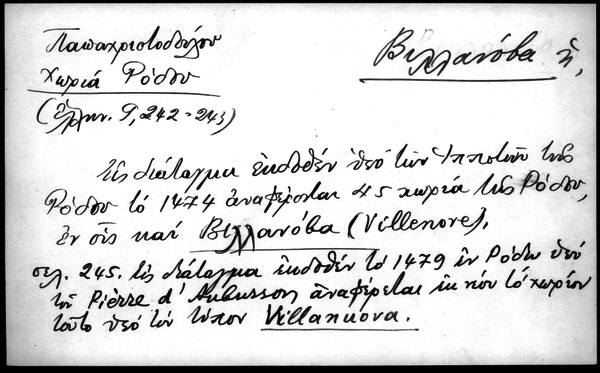 Παπαχριστοδούλου
Χωριά Ρόδου
Βιλλανόβα ἡ,
(Ἑλλην. 9, 242-243)
Εἰς διάταγμα ἐκδοθέν ὑπό τῶν Ἱπποτῶν τῆς
Ρόδου τό 1474 ἀναφέρεται 45 χωριά τῆς Ρόδου,
ἐν οἷς καί Βιλλανόβα (Villenove),
σελ. 245. εἰς διάταγμα ἐκδοθέν τό 1479 ἐν Ρόδῳ ὑπό
τοῦ Pièrre d'Aubusson ἀναφέρεται ἐκ νέου τό χωρίον
τοῦτο ὑπό τόν τύπον Villanuova.